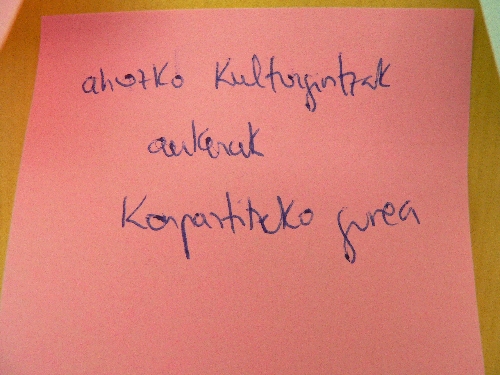 ahozko Kulturgintzak
aukerak
Konpartitzeko gurea